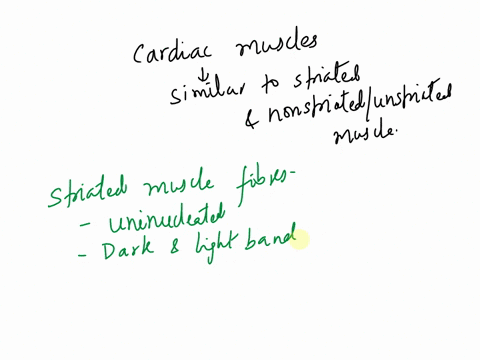 Cardiac muscles
↓
similar to striated
& nonstriated/unstriated
muscle.
Striated muscle fibres-
- uninucleated
- Dark & light band